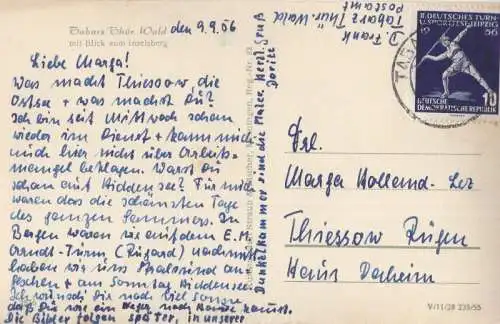 Tabarz Thür. Wald
mit Blick zum Inselsberg
den 9.9.56
Liebe Marga!
Was macht Thiessow, die
Ostsee + was machst Du?
Ich bin seit Mittwoch schon
wieder im Dienst + kann mich
hier nicht über Arbeits-
mangel beklagen. Warst Du
schon auf Hiddensee? Für mich
waren das die schönsten Tage
des ganzen Sommers. In
Bergen waren wir auf dem E. M.
Arndt-Turm (Rugard) nachmitt.
haben wir uns Stralsund an-
gesehen + am Sonntag Hiddensee.
Ich wünsch Dir noch viel Sonne
daß Du wie ein Neger nach Hause kommst.
Die Bilder folgen später, in unserer
Dunkelkammer sind die Maler. Herzl. Gruß
Doritt
D. Frank
Tabarz Thür Wald
Postamt
II. DEUTSCHES TURN-
U. SPORTFEST LEIPZIG
19 56
10
DEUTSCHE
DEMOKRATISCHE REPUBLIK
TABARZ
Frl.
Marga Hollemd
Thiessow Rügen
Haus Daheim
V/11/28 235/55